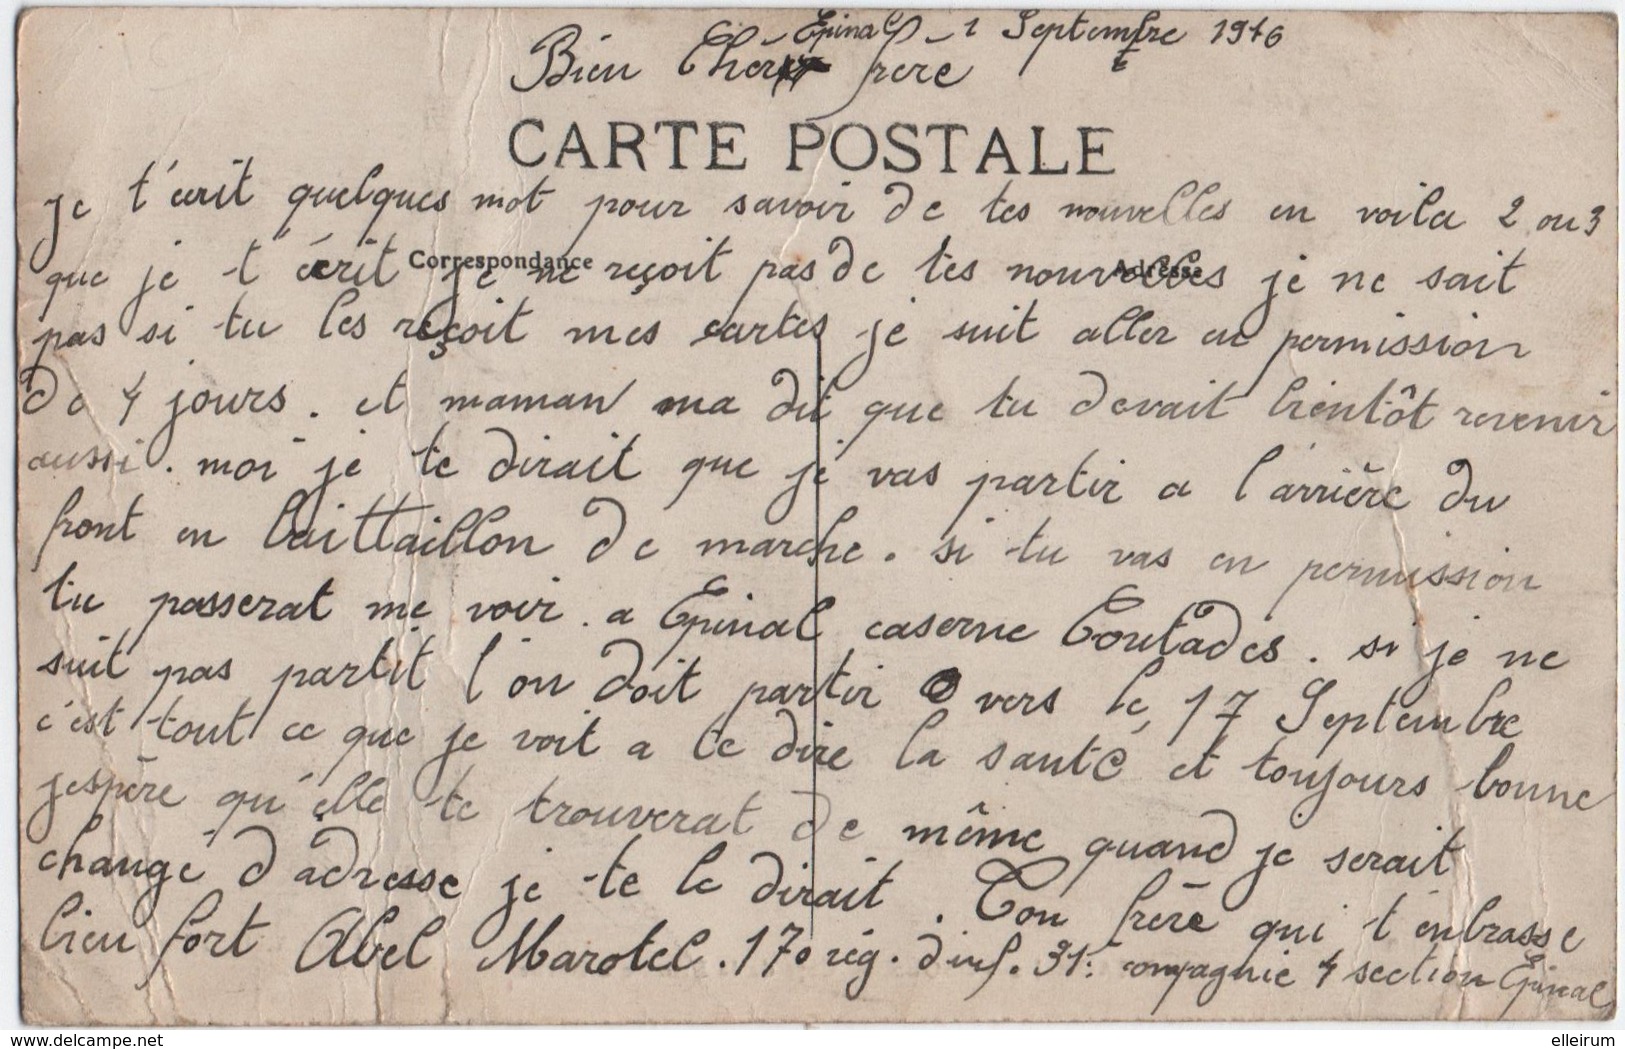 Epinal - 1 Septembre 1916
Bien Cher frere
CARTE POSTALE
je t'écrit quelques mot pour savoir de tes nouvelles en voila 2 ou 3
Correspondance
Adresse
que je t'écrit je ne reçoit pas de tes nouvelles je ne sait
pas si tu les reçoit mes cartes je suit aller en permission
de 4 jours. et maman ma dit que tu devait bientôt revenir
aussi. moi je te dirait que je vas partir a l'arrière du
front en baittaillon de marche. si tu vas en permission
tu passerat me voir. a Epinal caserne Contades. si je ne
suit pas partit l'on doit partir vers le, 17 Septembre
c'est tout ce que je voit a te dire la santé et toujours bonne
jespère qu'elle te trouverat de même quand je serait
changé d'adresse je te le dirait. Ton frère qui t'enbrasse
bien fort Abel Marotel. 170 rég. d'inf. 31: compagnie 4 section Epinal
delcampe.net
elleirum